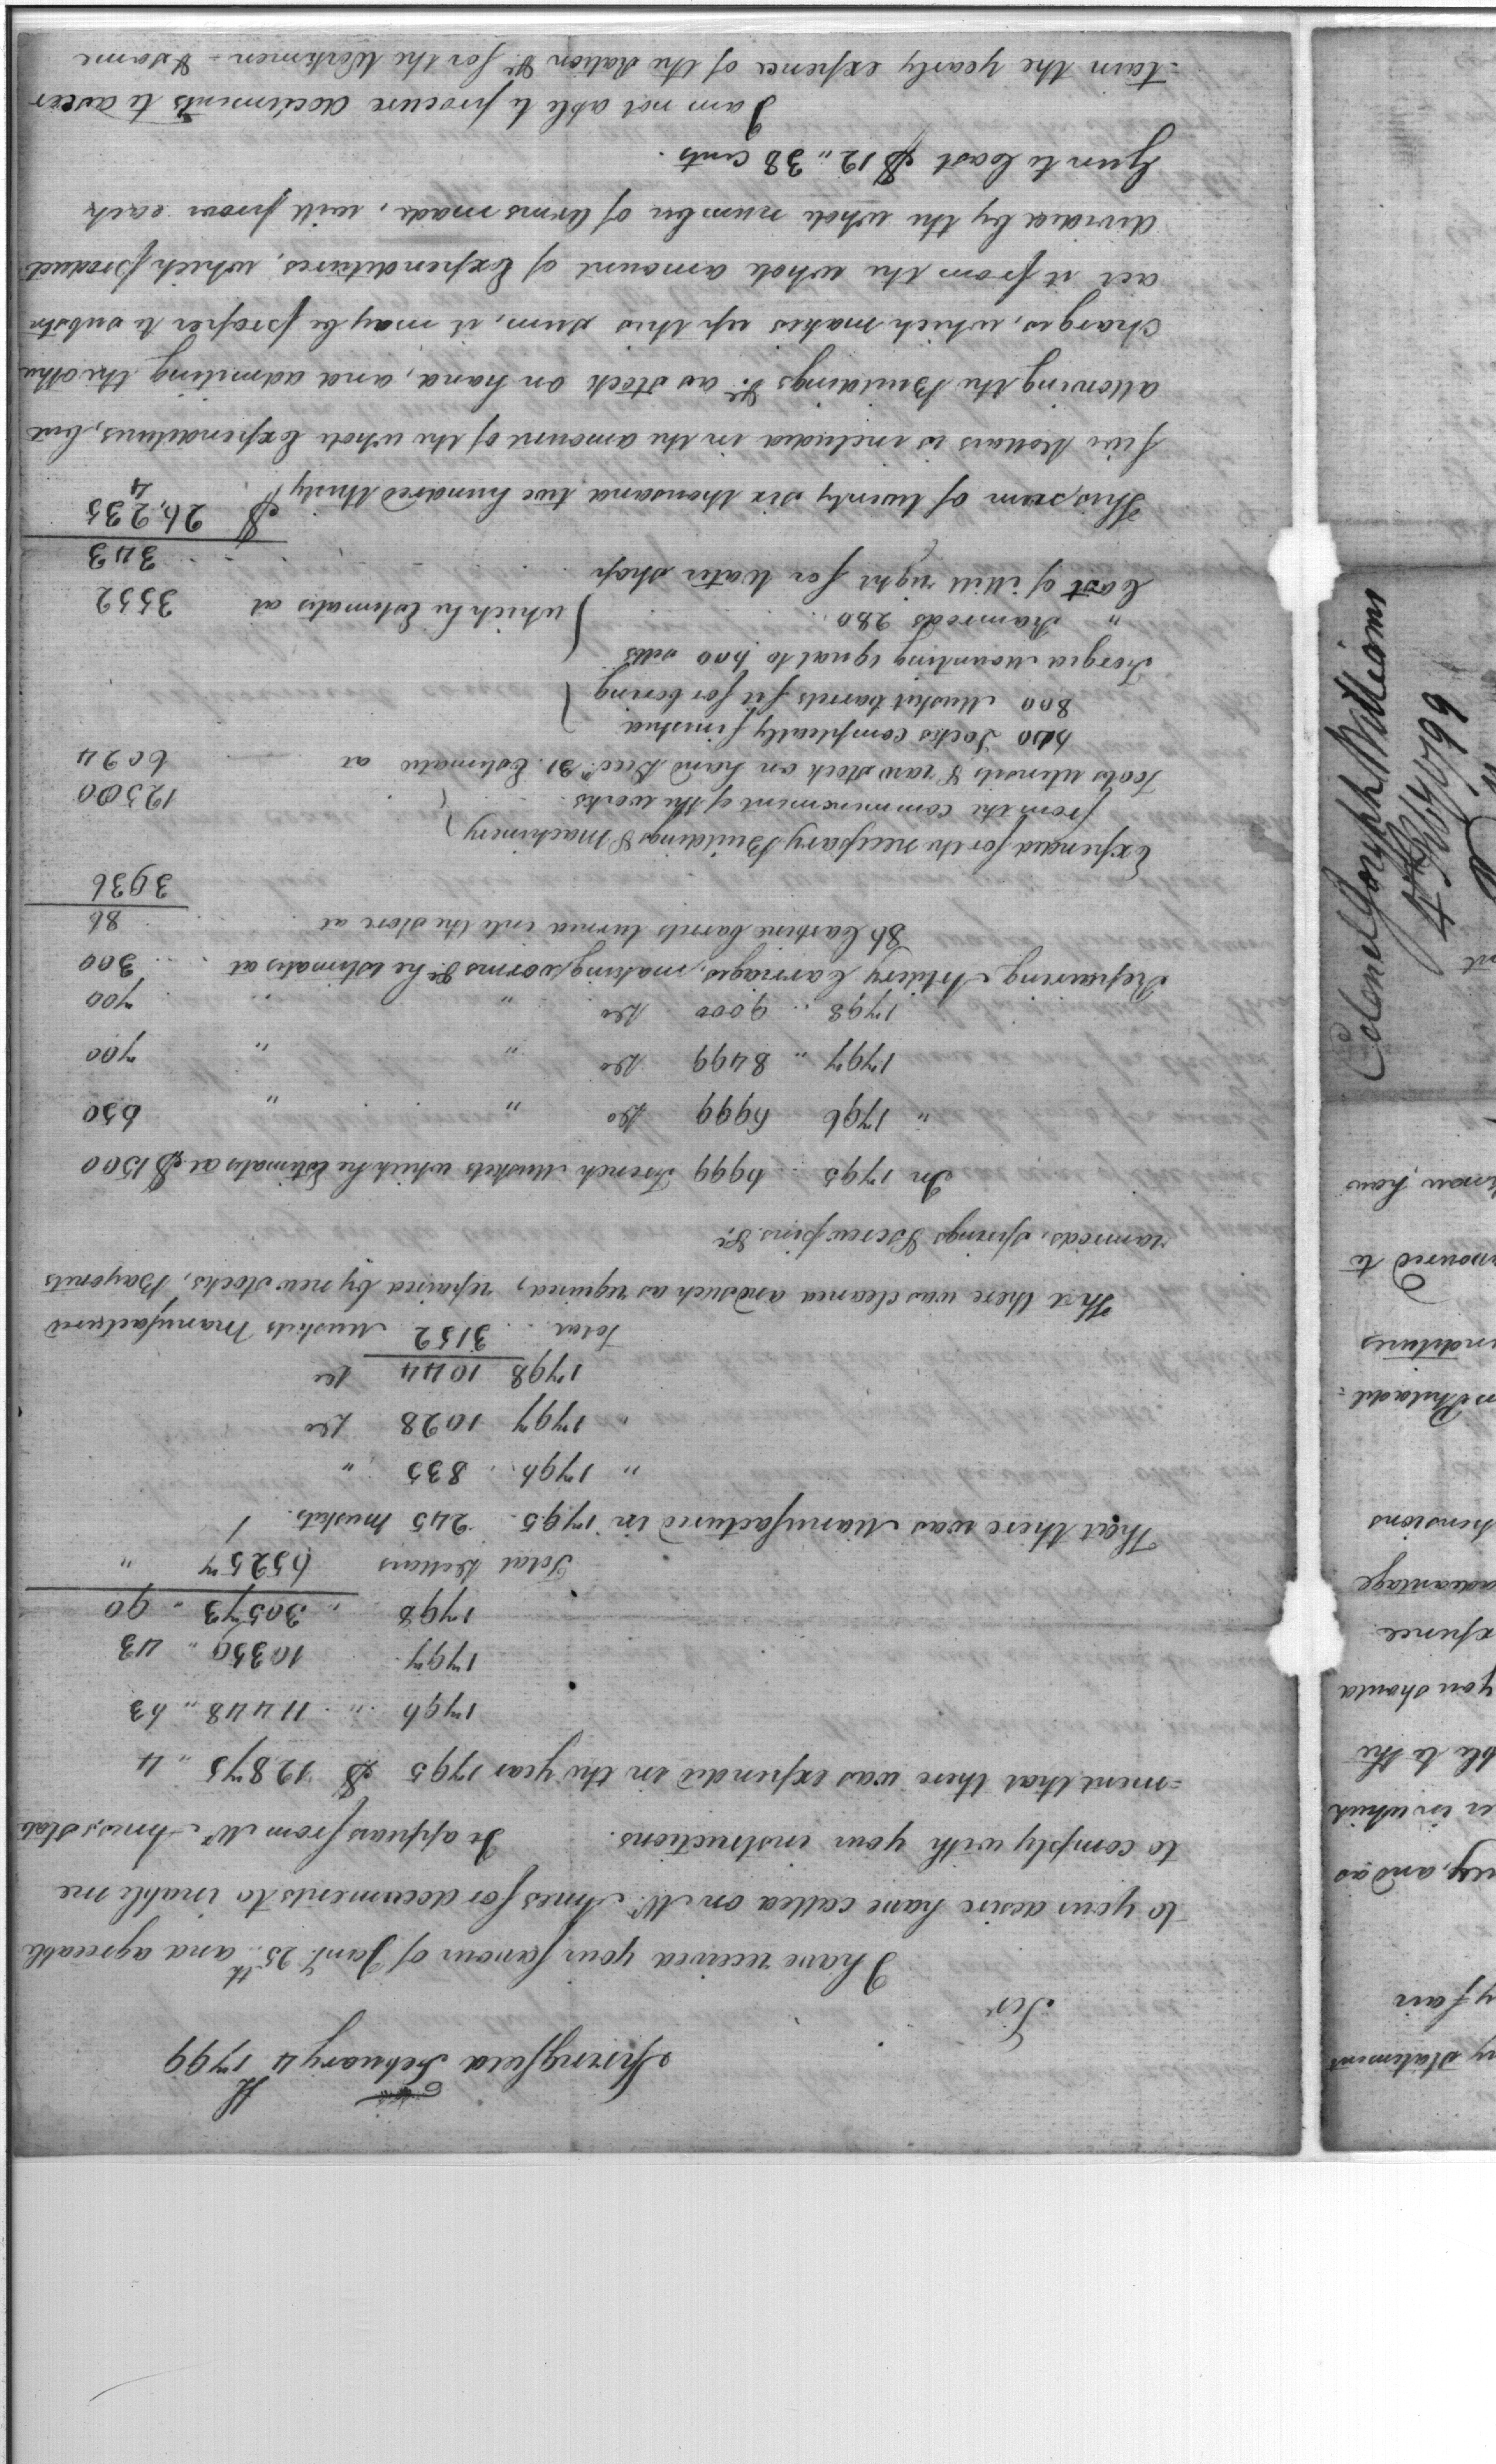 Springfield February 4th 1799
Sir
I have received your favour of Jany. 25th and agreeable
to your desire have called on Mr. Ames for documents to inable me
to comply with your instructions. It appears from Mr. Ames, state
=ment that there was expended in the year 1795 $ 12875 " 4
1796 " 11448 " 63
1797 10359 " 43
1798 " 30573 " 90
Total Dollars 65257 "
That there was Manufactured in 1795. 245 Muskets.
" 1796 .. 835 "
" 1797 1028 Do
1798 1044 Do
Total .. 3152 Muskets Manufactured
That there was cleaned and such as required, repaired by new stocks, Bayonets
ramrods, springs & screw pins &c.
In 1795 .. 6999 French Muskets which he Estimates at $ 1500
" 1796 6999 Do " " 650
1797 " 8499 Do " " 700
1798 .. 9000 Do " " 700
Repairing Artilery Carriages, making worms &c. he estimates at 300
86 Carbine barrels turned into the store at 86
3936
Expended for the necessary Buildings & Machinery
from the commencment of the works 12500
Tools utensils & raw stock on hand Decr. 31. Estimate at 6094
600 Locks compleatly finished
800 Musket barrels fit for boring
Forged Mounting equal to 600 setts
" Ramrods 280 which he Estimates at 3552
Cost of Mill right for Water shop 343
This sum of twenty six thousand two hundred thirty $ 26,235
4
five Dollars is included in the amount of the whole Expenditures, but
allowing the Buildings &c. as stock on hand, and admiting the other
charges, which makes up this sum, it may be proper to substr
act it from the whole amount of Expenditures, which product
divided by the whole number of Arms made, will prove each
Gun to Cost $ 12 " 38 Cents.
I am not able to procure documents to ascer
=tain the yearly expence of the Ration &c. for the Workmen - & some
Colonel Joseph Williams
4 Feby 1799
y statement
y fair
ly, and as
er in which
ble to the
you should
xpence
advantage
hensions
n Philadel=
nditures
noured to
know, how